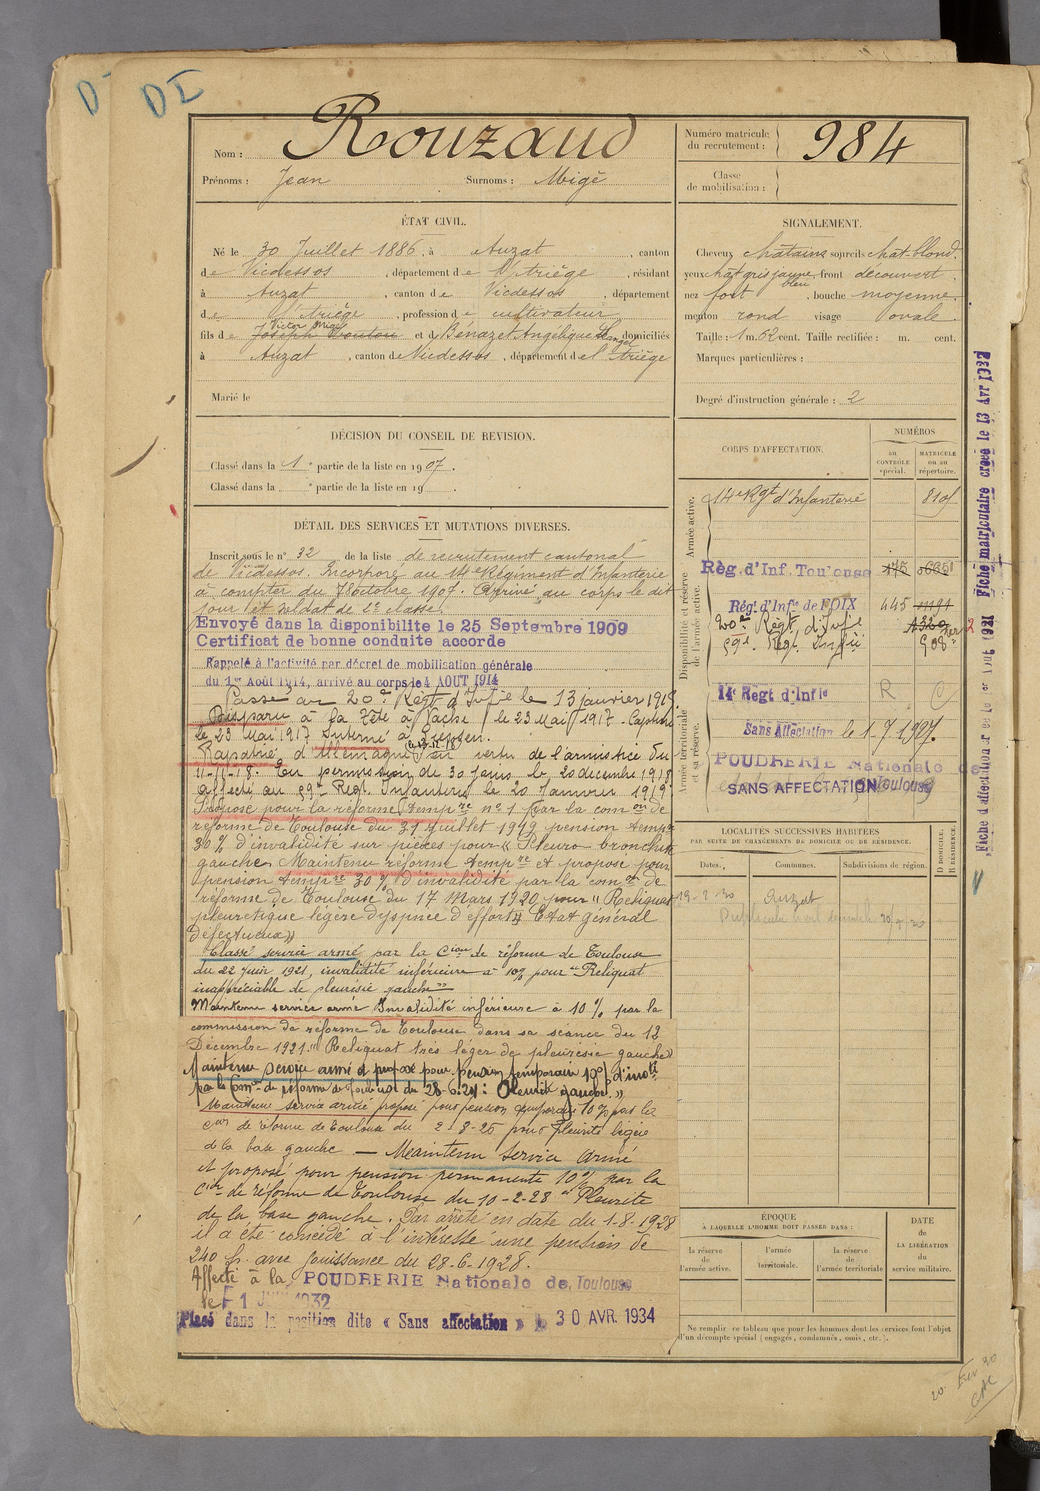 D I
Nom : Rouzaud
Prénoms : Jean Surnoms : Migé
Numéro matricule du recrutement : 984
Classe de mobilisation :
ÉTAT CIVIL.
Né le 30 Juillet 1886, à Auzat, canton
de Vicdessos, département de l'Ariège, résidant
à Auzat, canton de Vicdessos, département
de l'Ariège, profession de cultivateur
Victor Migé
fils de Joseph et de Bénazet Angélique domiciliés
à Auzat, canton de Vicdessos, département de l'Ariège
Marié le
SIGNALEMENT.
Cheveux chatains sourcils chat. blond.
yeux chat gris jaune, front découvert
bleu
nez fort, bouche moyenne,
menton rond visage ovale.
Taille : 1 m. 62 cent. Taille rectifiée : m. cent.
Marques particulières :
Degré d'instruction générale : 2
DÉCISION DU CONSEIL DE REVISION.
Classé dans la 1e partie de la liste en 1907.
Classé dans la e partie de la liste en 19 .
DÉTAIL DES SERVICES ET MUTATIONS DIVERSES.
Inscrit sous le n° 32 de la liste de recrutement cantonal
de Vicdessos. Incorporé au 14e Régiment d'Infanterie
à compter du 7 8octobre 1907. Arrivé au corps le dit
jour et soldat de 2e classe.
Envoyé dans la disponibilite le 25 Septembre 1909
Certificat de bonne conduite accorde
Rappelé à l'activité par décret de mobilisation générale
du 1er Août 1914, arrivé au corps le 4 AOUT 1914
Passé au 20e Régt d'Infie le 13 janvier 1915.
Disparu à la Tête à Vache le 23 Mai 1917 - Capturé
le 23 Mai 1917 Interné à Giessen.
Rapatrié d'Allemagne en vertu de l'armistice du
11-11-18. En permission de 30 jours le 20 decembre 1918
affecté au 59e Régt. Infanterie le 20 Janvier 1919.
Proposé pour la réforme tempre n° 1 par la comon de
réforme de Toulouse du 31 juillet 1919 pension tempre
30 % d'invalidité sur pièces pour « Pleuro-bronchite
gauche » Maintenu réformé tempre et proposé pour
pension tempre 30 % d'invalidité par la comon de
réforme de Toulouse du 17 Mars 1920 pour « Reliquat
pleurétique légère dyspnée d'effort. Etat général
défectueux »
Classé service armé par la Cion de réforme de Toulouse
du 22 Juin 1921, invalidité inférieure à 10% pour « Reliquat
inappréciable de pleurésie gauche »
Maintenu service armé Invalidité inférieure à 10 % par la
commission de réforme de Toulouse dans sa séance du 13
Décembre 1921. « Reliquat très léger de pleurésie gauche »
Maintenu service armé et proposé pour pension temporaire 10% d'invté
par la Comon de réforme de Toulouse du 28-6-24 : Pleurite gauche. »
Maintenu service armé proposé pour pension temporaire 10% par la
Cion de réforme de Toulouse du 2-8-25 pour Pleurite légère
de la base gauche — Maintenu Service Armé
et proposé pour pension permanente 10% par la
Cion de réforme de Toulouse du 10-2-28 « Pleurite
de la base gauche. Par arrêté en date du 1-8-1928
il a été concédé à l'intéressé une pension de
240 fr. avec jouissance du 28-6-1928.
Affecté à la POUDRERIE Nationale de Toulouse
le 1 JUIN 1932
Placé dans la position dite « Sans affectation » le 30 AVR. 1934
CORPS D'AFFECTATION.
NUMÉROS
AU CONTRÔLE SPÉCIAL.
MATRICULE OU AU RÉPERTOIRE.
Armée active.
14e Rgt d'Infanterie
Disponibilité et réserve de l'armée active.
Rég. d'Inf. Toulouse
Régt d'Infie de FOIX 445
20e Régt d'Infie
59e Rég. Infie 908
Armée territoriale et sa réserve.
14e Regt d'Infie R
Sans Affectation le 1-7 1927.
POUDRERIE Nationale de
SANS AFFECTATION Toulouse
LOCALITÉS SUCCESSIVES HABITÉES
PAR SUITE DE CHANGEMENTS DE DOMICILE OU DE RÉSIDENCE.
Dates. Communes. Subdivisions de région. D. DOMICILE. R. RÉSIDENCE.
19-2-30 Auzat
ÉPOQUE
À LAQUELLE L'HOMME DOIT PASSER DANS :
la réserve de l'armée active.
l'armée territoriale.
la réserve de l'armée territoriale
DATE DE LA LIBÉRATION du service militaire.
Ne remplir ce tableau que pour les hommes dont les services font l'objet
d'un décompte spécial (engagés, condamnés, omis, etc.).
Fiche matriculaire créée le 13 AVR 1932